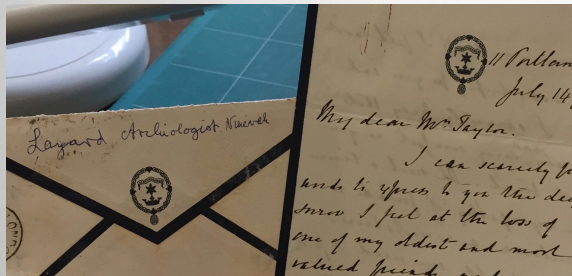 Layard Archeologist Nineveh
11 Portlan
July 14,
My dear Mrs Taylor.
I can scarcely f
words to express to you the dee
sorrow I feel at the loss of
one of my oldest and most
valued friends